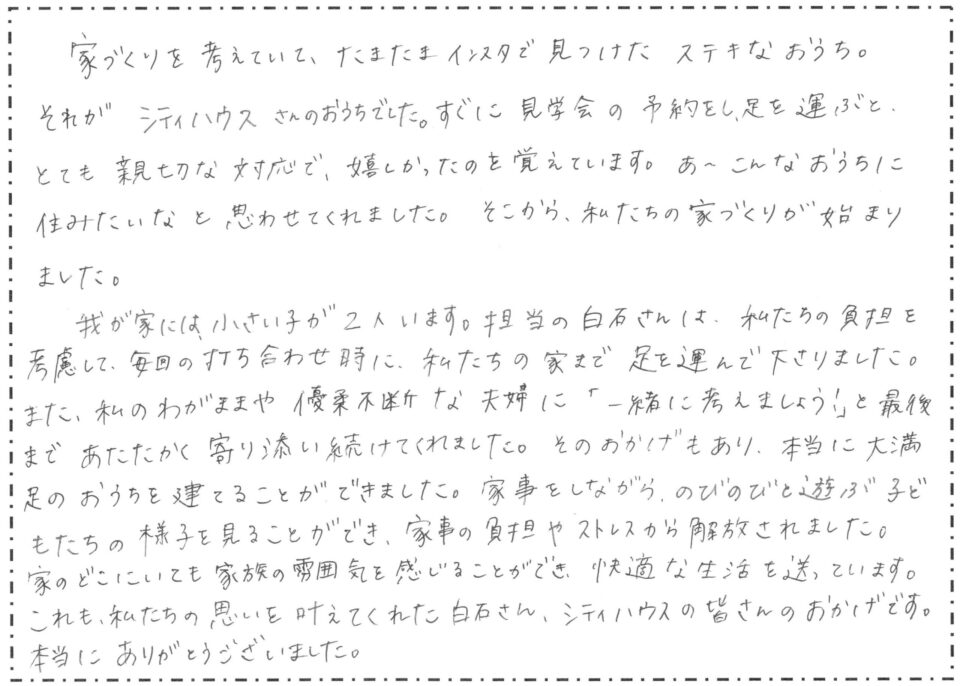 家づくりを考えていて、たまたまインスタで見つけたステキなおうち。
それがシティハウスさんのおうちでした。すぐに見学会の予約をし、足を運ぶと、
とても親切な対応で、嬉しかったのを覚えています。あ〜こんなおうちに
住みたいなと思わせてくれました。そこから、私たちの家づくりが始まり
ました。
我が家には、小さい子が2人います。担当の白石さんは、私たちの負担を
考慮して、毎回の打ち合わせ時に、私たちの家まで足を運んで下さりました。
また、私のわがままや優柔不断な夫婦に「一緒に考えましょう!」と最後
まであたたかく寄り添い続けてくれました。そのおかげもあり、本当に大満
足のおうちを建てることができました。家事をしながら、のびのびと遊ぶ子ど
もたちの様子を見ることができ、家事の負担やストレスから解放されました。
家のどこにいても家族の雰囲気を感じることができ、快適な生活を送っています。
これも、私たちの思いを叶えてくれた白石さん、シティハウスの皆さんのおかげです。
本当にありがとうございました。